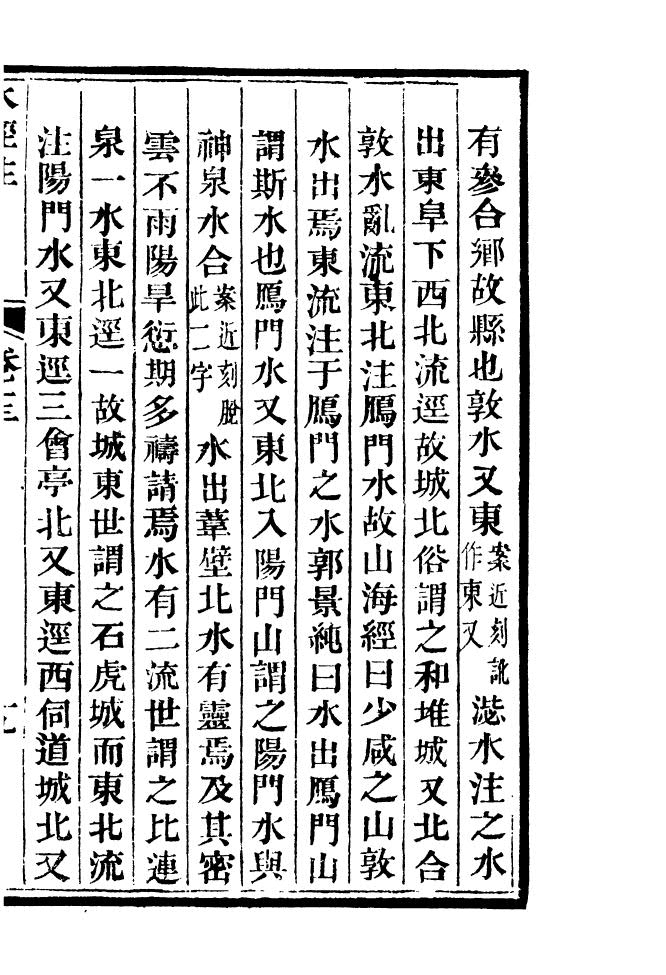 有參合鄉故縣也敦水又東案近刻訛作東又㵽水注之水
出東阜下西北流逕故城北俗謂之和堆城又北合
敦水亂流東北注鴈門水故山海經曰少咸之山敦
水出焉東流注于鴈門之水郭景純曰水出鴈門山
謂斯水也鴈門水又東北入陽門山謂之陽門水與
神泉水合案近刻脫此二字水出葦壁北水有靈焉及其密
雲不雨陽旱愆期多禱請焉水有二流世謂之比連
泉一水東北逕一故城東世謂之石虎城而東北流
注陽門水又東逕三會亭北又東逕西伺道城北又
水經注 卷十三